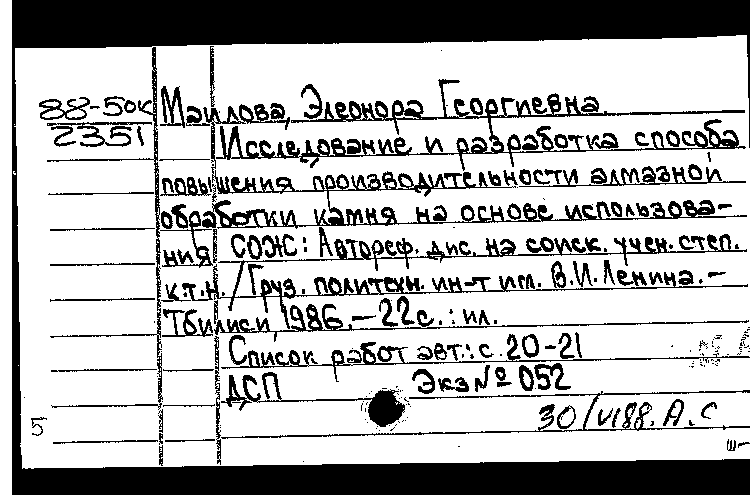 88-50к Маилова, Элеонора Георгиевна.
2351 Исследование и разработка способа
повышения производительности алмазной
обработки камня на основе использова-
ния СОЖ: Автореф. дис. на соиск. учен. степ.
к.т.н. / Груз. политехн. ин-т им. В.И.Ленина. –
Тбилиси, 1986. – 22с. : ил.
Список работ авт.: с. 20-21
ДСП Экз № 052
30/VI88. А.С.
5
ш-